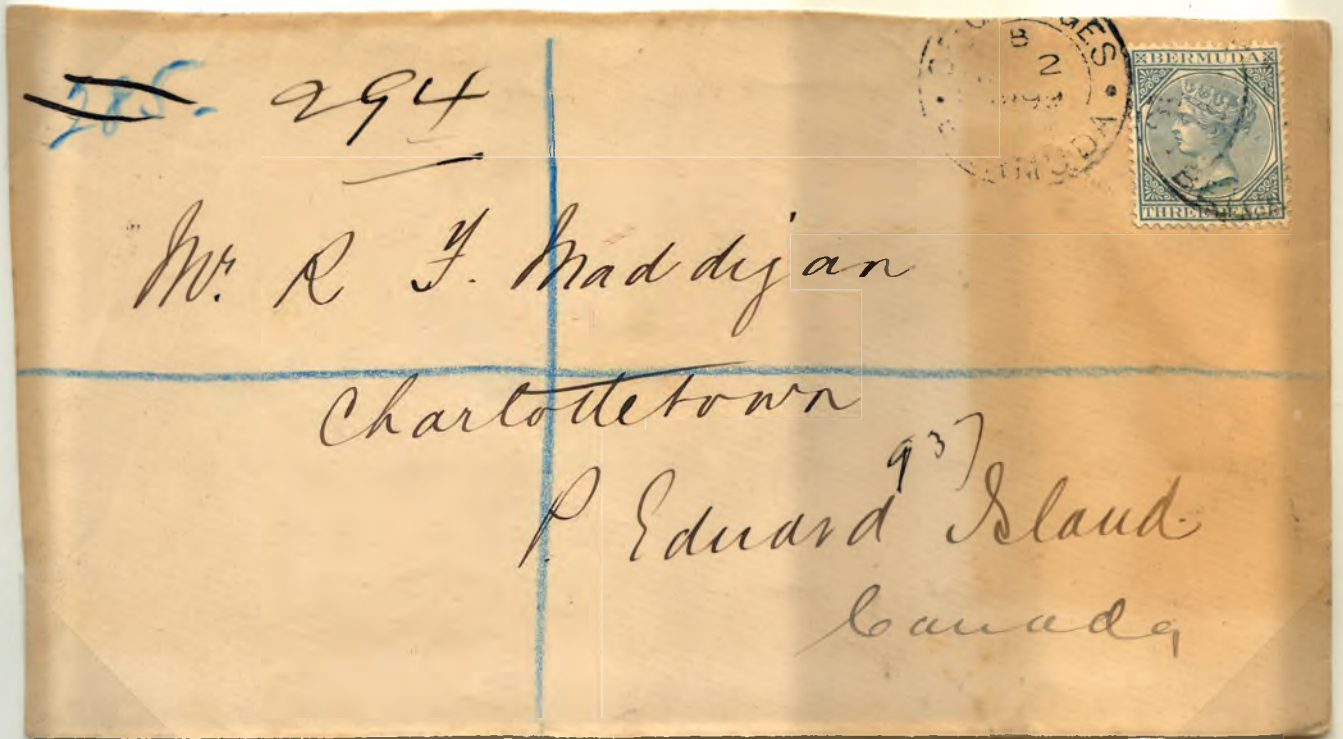 285. 294
BERMUDA
THREE PENCE
Mr. R F. Maddigan
Charlottetown
937
P. Edward Island
Canada